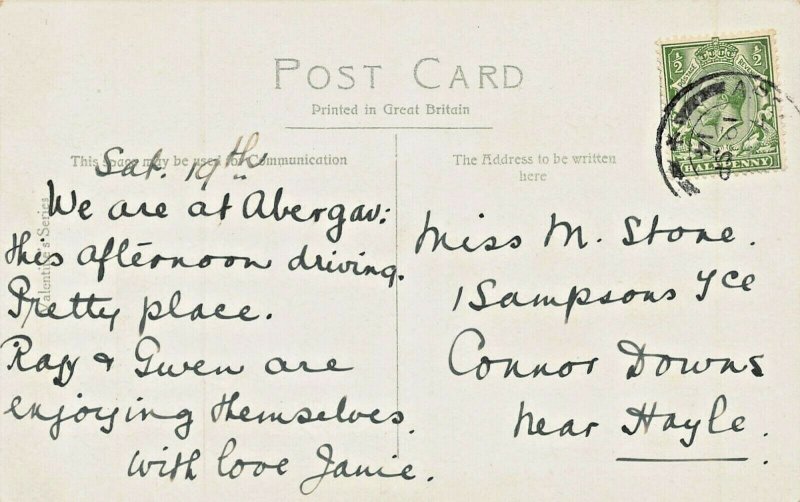 POST CARD
Printed in Great Britain
This space may be used for Communication
The Address to be written
here
Valentine's Series
½ ½
HALFPENNY
Sat. 19th
We are at Abergav:
this afternoon driving.
Pretty place.
Ray & Gwen are
enjoying themselves.
With love Janie.
Miss M. Stone.
1 Sampsons Tce
Connor Downs
Near Hayle.